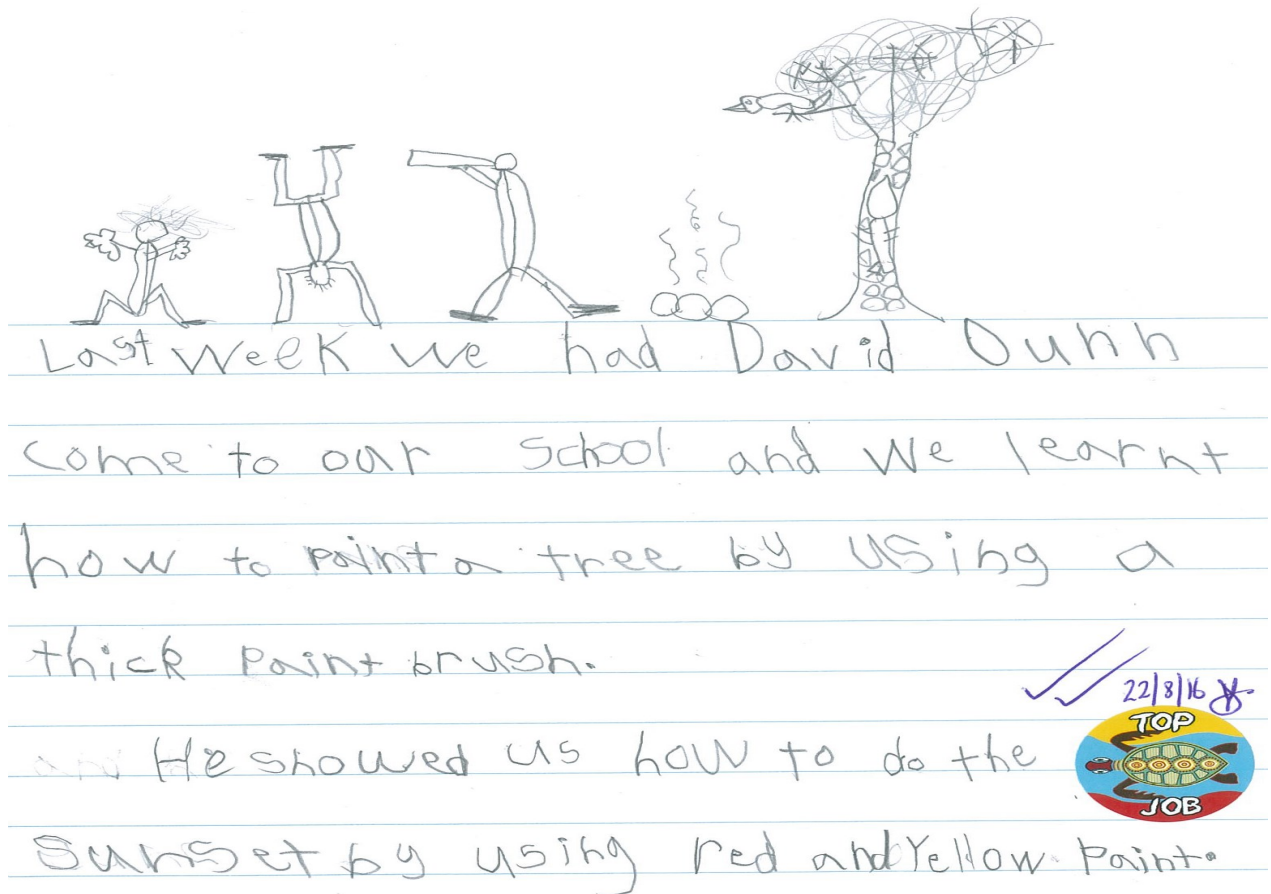 Last week we had David Dunn
come to our school and we learnt
how to paint a tree by using a
thick paint brush.
22/8/16
TOP
JOB
and He showed us how to do the
sunset by using red and Yellow Paint.